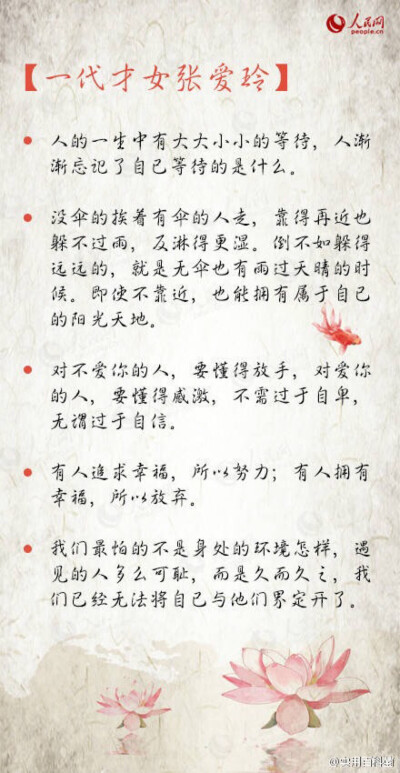 人民网
people.cn
【一代才女张爱玲】
人的一生中有大大小小的等待，人渐
渐忘记了自己等待的是什么。
没伞的挨着有伞的人走，靠得再近也
躲不过雨，反淋得更湿。倒不如躲得
远远的，就是无伞也有雨过天晴的时
候。即使不靠近，也能拥有属于自己
的阳光天地。
对不爱你的人，要懂得放手，对爱你
的人，要懂得感激，不需过于自卑，
无谓过于自信。
有人追求幸福，所以努力；有人拥有
幸福，所以放弃。
我们最怕的不是身处的环境怎样，遇
见的人多么可耻，而是久而久之，我
们已经无法将自己与他们界定开了。
@实用百科